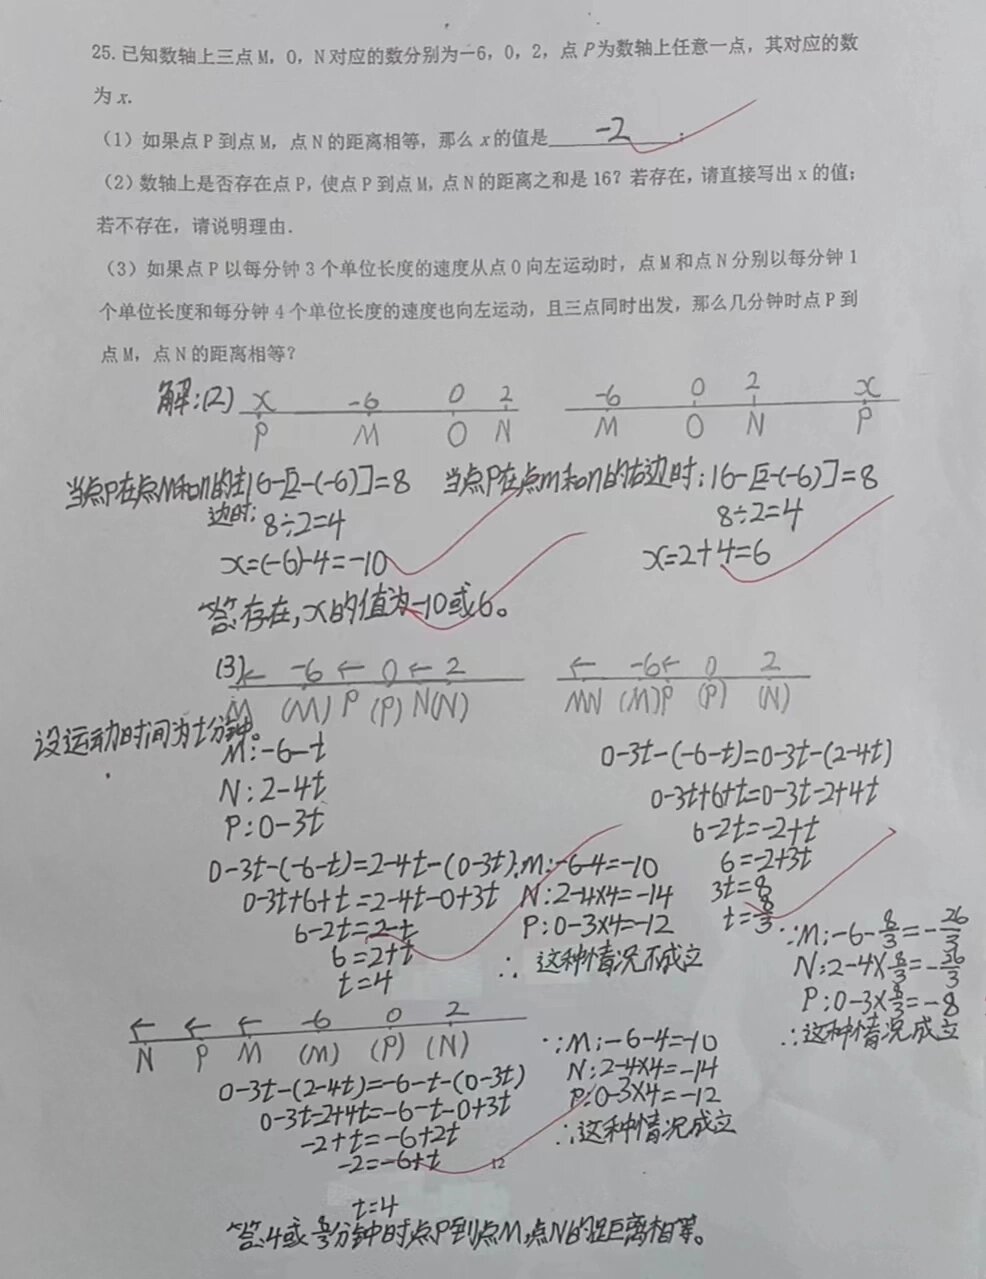 25. 已知数轴上三点 M, O, N 对应的数分别为－6, 0, 2, 点 P 为数轴上任意一点, 其对应的数
为 x.
(1) 如果点 P 到点 M, 点 N 的距离相等, 那么 x 的值是 -2 ;
(2) 数轴上是否存在点 P, 使点 P 到点 M, 点 N 的距离之和是 16? 若存在, 请直接写出 x 的值;
若不存在, 请说明理由.
(3) 如果点 P 以每分钟 3 个单位长度的速度从点 O 向左运动时, 点 M 和点 N 分别以每分钟 1
个单位长度和每分钟 4 个单位长度的速度也向左运动, 且三点同时出发, 那么几分钟时点 P 到
点 M, 点 N 的距离相等?
解:(2) x -6 0 2
P M O N
-6 0 2 x
M O N P
当点P在点M和n的左边时: 16-[2-(-6)]=8
8÷2=4
x=(-6)-4=-10
当点P在点m和n的右边时: 16-[2-(-6)]=8
8÷2=4
x=2+4=6
答:存在,x的值为-10或6。
(3) ← -6 ← 0 ← 2
M (M) P (P) N(N)
← -6← 0 2
MN (M)P (P) (N)
设运动时间为t分钟。
M:-6-t
N:2-4t
P:0-3t
0-3t-(-6-t)=2-4t-(0-3t)
0-3t+6+t=2-4t-0+3t
6-2t=2-t
6=2+t
t=4
∵M:-6-4=-10
N:2-4×4=-14
P:0-3×4=-12
∴ 这种情况不成立
0-3t-(-6-t)=0-3t-(2-4t)
0-3t+6+t=0-3t-2+4t
6-2t=-2+t
6=-2+3t
3t=8
t=8/3
∵M:-6-8/3=-26/3
N:2-4×8/3=-26/3
P:0-3×8/3=-8
∴这种情况成立
← ← ← -6 0 2
N P M (M) (P) (N)
0-3t-(2-4t)=-6-t-(0-3t)
0-3t-2+4t=-6-t-0+3t
-2+t=-6+2t
-2=-6+t
t=4
∵M:-6-4=-10
N:2-4×4=-14
P:0-3×4=-12
∴这种情况成立
12
答:4或8/3分钟时点P到点M,点N的距离相等。